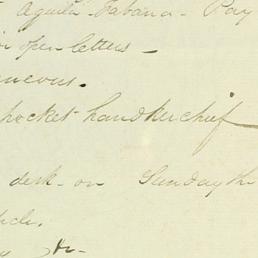 Aguila Habana - Pay
open letters -
pocket handkerchief
desk - on Sunday the